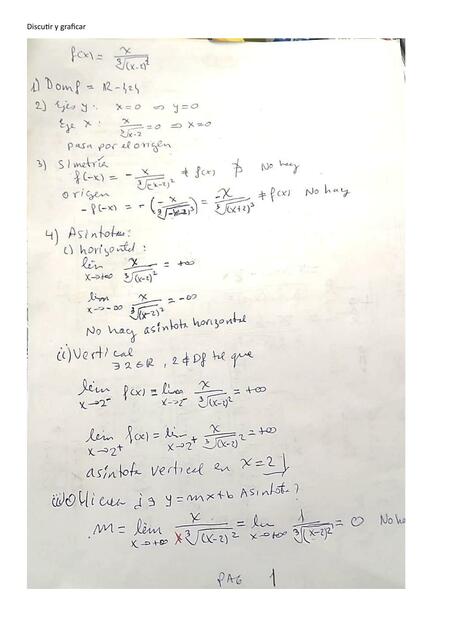 Discutir y graficar
f(x) = x/∛(x-2)²
1) Domf = R-{2}
2) Ejes y: x=0 ⇒ y=0
Eje x: x/∛x-2 = 0 ⇒ x=0
pasa por el origen
3) Simetría
f(-x) = - x/∛(x-2)² ≠ f(x) No hay
origen
-f(-x) = -(-x/) = -x/∛(x+2)³ ≠ f(x) No hay
4) Asíntotas:
i) horizontal:
lím x→+∞ x/∛(x-2)² = +∞
lím x→-∞ x/∛(x-2)² = -∞
No hay asíntota horizontal
ii) Vertical
∃ 2 ∈ R, 2 ∉ Df tal que
lím x→2⁻ f(x) = lím x→2⁻ x/∛(x-2)² = +∞
lím x→2⁺ f(x) = lím x→2⁺ x/∛(x-2)² = +∞
asíntota vertical en x=2
iii) Oblicua ¿∃ y=mx+b Asíntota?
m = lím x→+∞ x/x∛(x-2)² = lím x→+∞ 1/∛(x-2)² = 0 No ha
PAG 1